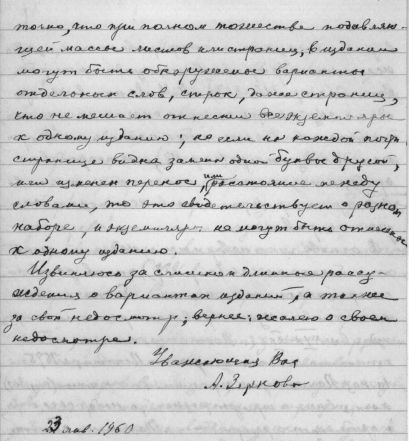 точно, что при полном тожестве подавляю-
щей массы листов или страниц, в издании
могут быть обнаружены варианты
отдельных слов, строк, даже страниц,
что не мешает отнести все экземпляры
к одному изданию; но если на каждой почти
странице видна замена одной буквы другой,
или изменен перенос или расстояние между
словами, то это свидетельствует о разном
наборе, и экземпляры не могут быть отнесены
к одному изданию.
Извиняюсь за слишком длинные рассу-
ждения о вариантах изданий, а также
за свой недосмотр; вернее: жалею о своем
недосмотре.
Уважающая Вас
А. Зернова
23 янв. 1960